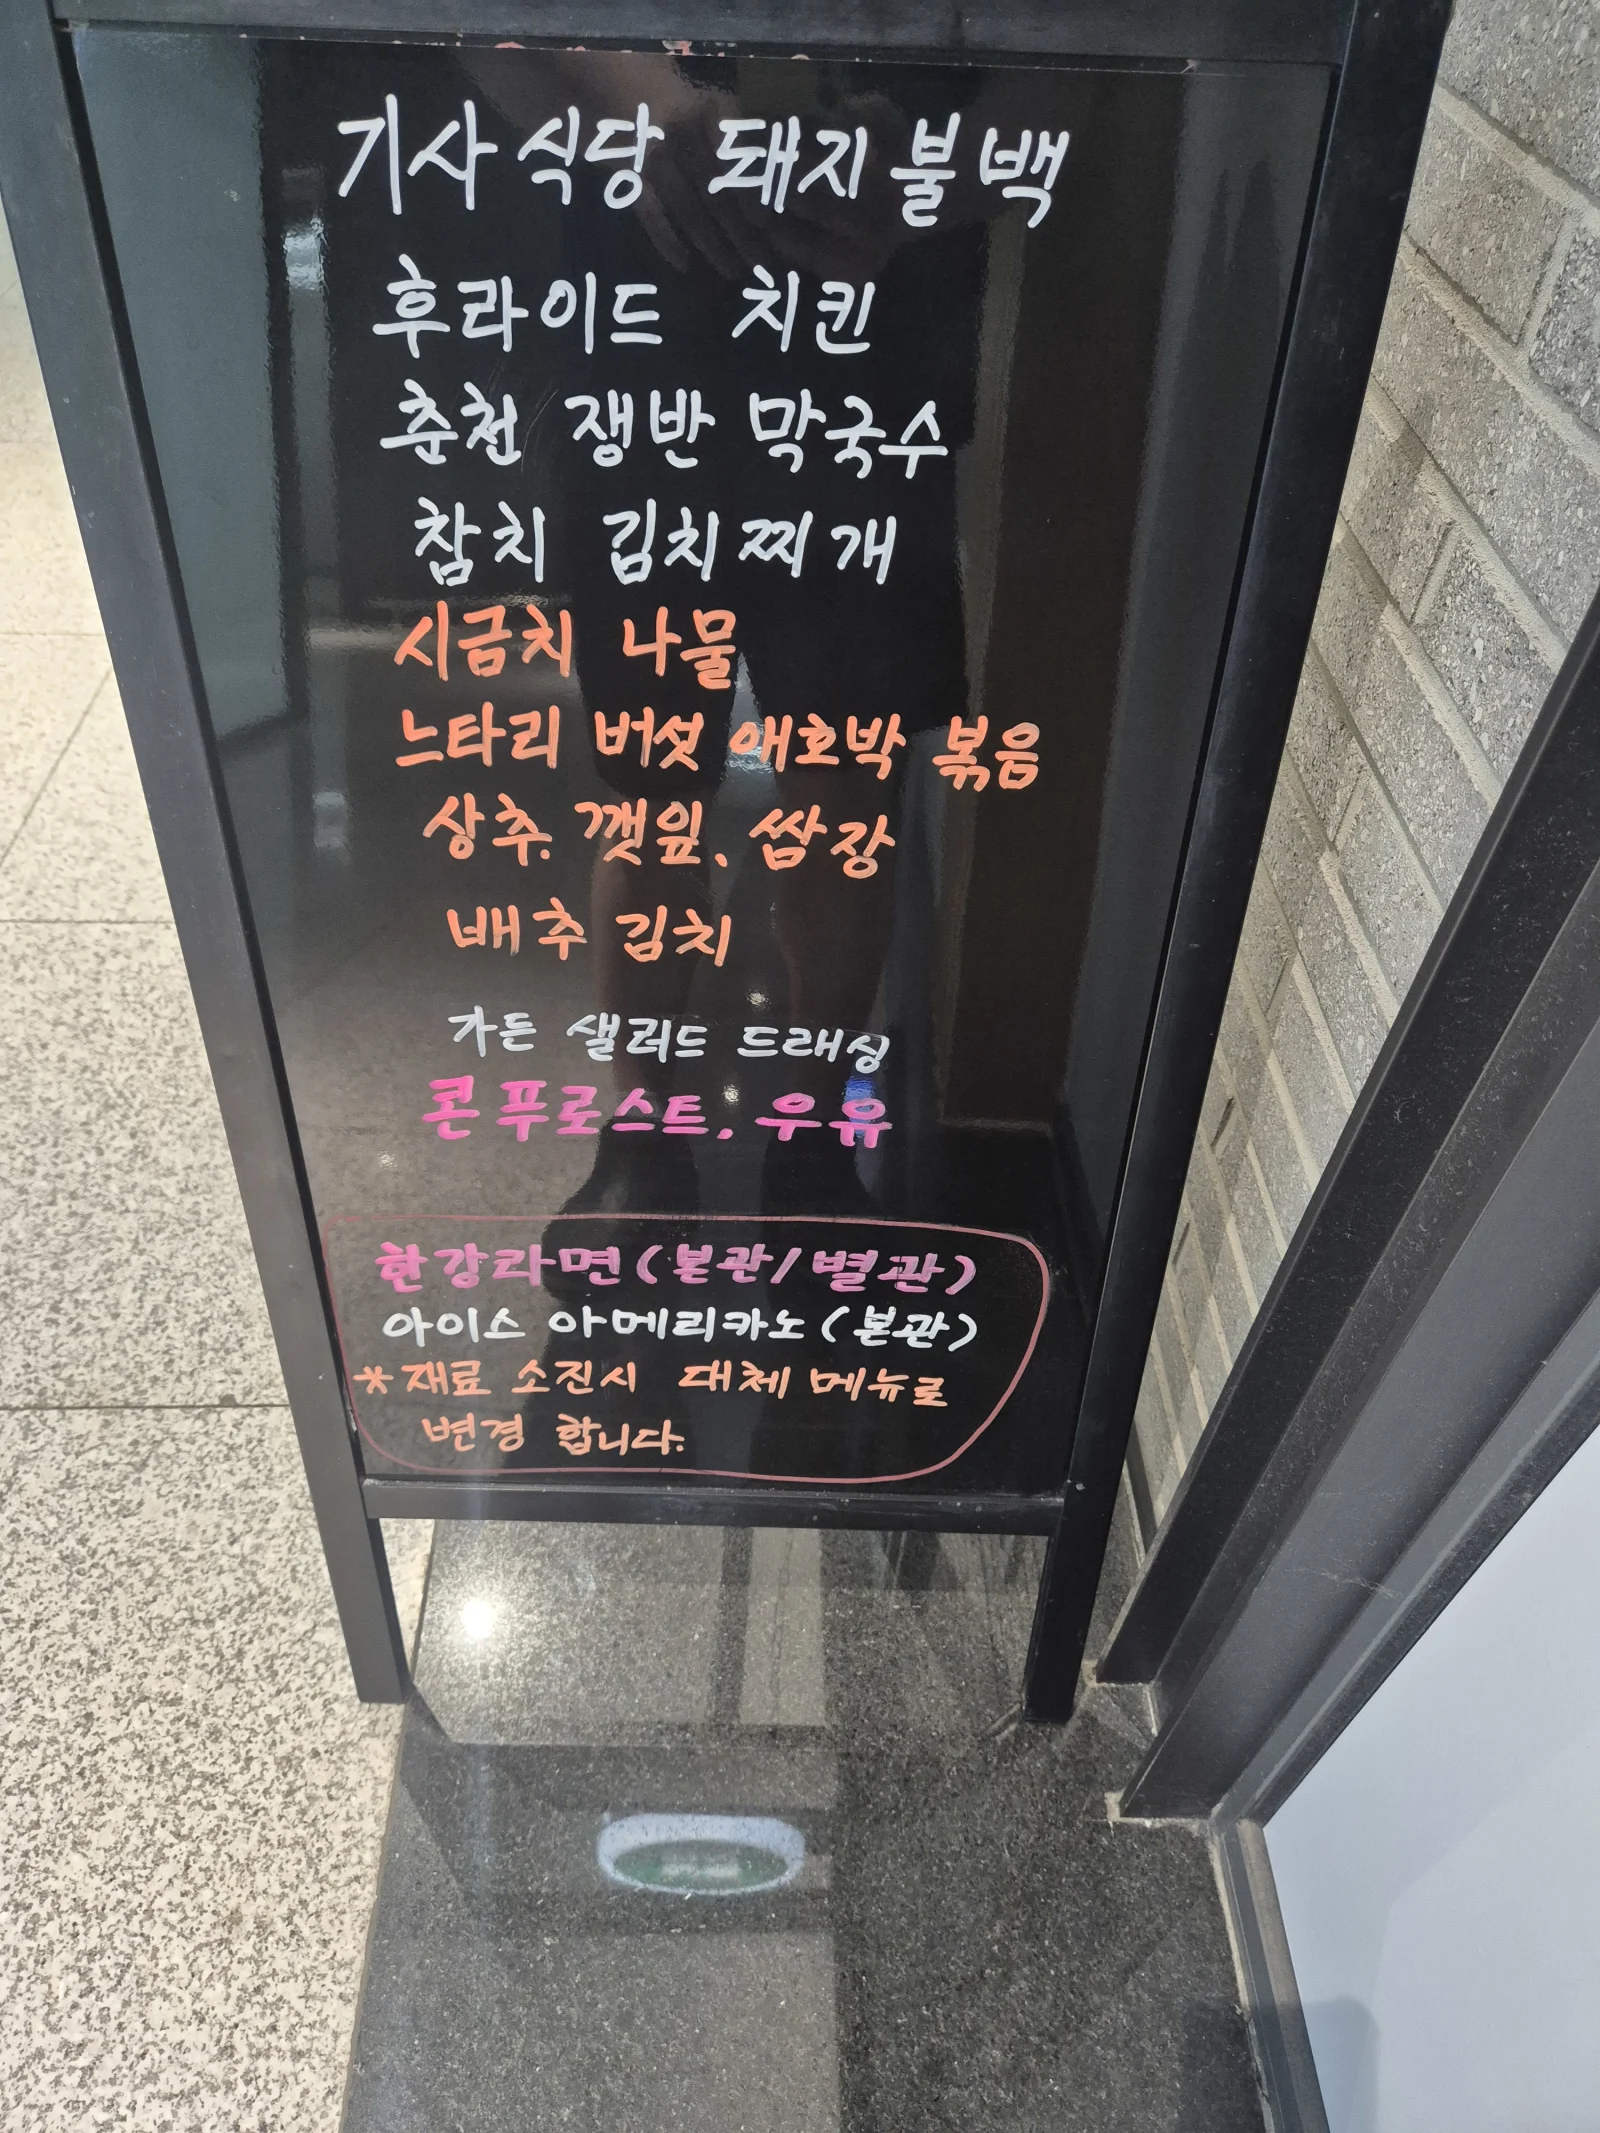 기사식당 돼지불백
후라이드 치킨
춘천 쟁반 막국수
참치 김치찌개
시금치 나물
느타리 버섯 애호박 볶음
상추. 깻잎. 쌈장
배추 김치
가든 샐러드 드래싱
콘푸로스트. 우유
한강라면(본관/별관)
아이스 아메리카노(본관)
*재료 소진시 대체 메뉴로
변경 합니다.